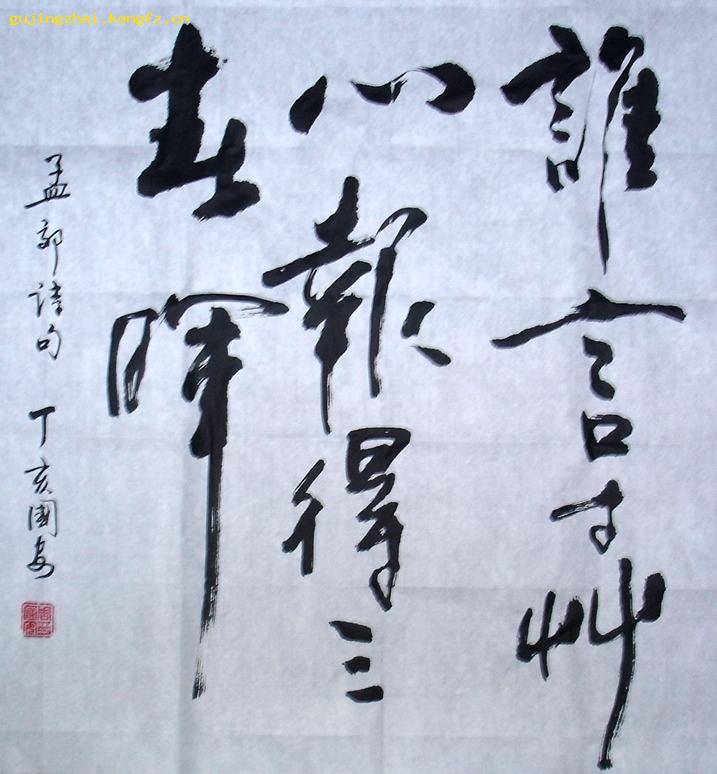 gujingzhai.kongfz.cn
誰言寸艸
心報得三
春暉
孟郊詩句 丁亥國安